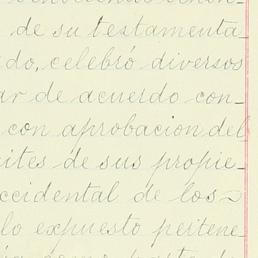 de su testamenta_
do, celebró diversos
ar de acuerdo con_
con aprobacion del
ites de sus propie_
ccidental de los
lo expuesto pertene_